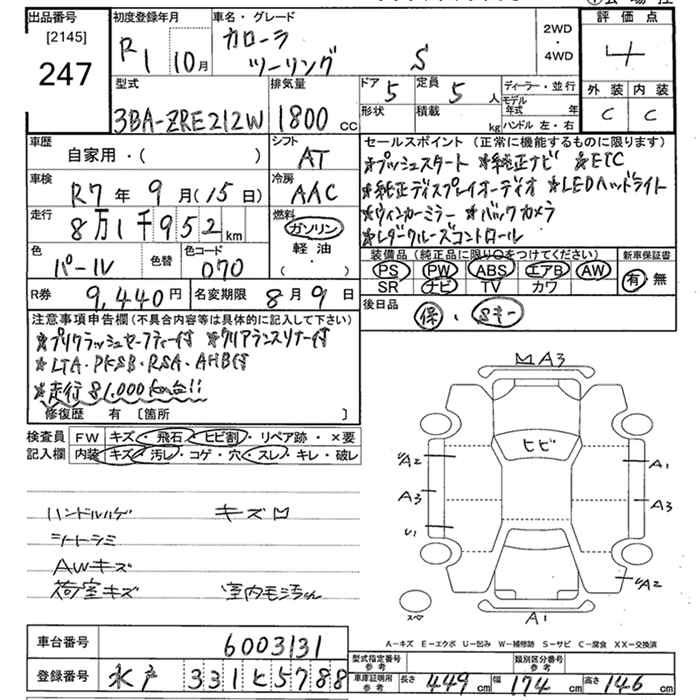 出品番号 [2145] 247
初度登録年月 R1 10月
車名・グレード カローラ ツーリング S
2WD ・ 4WD
評価点 4
外装 内装
C C
型式 3BA-ZRE212W
排気量 1800 cc
ドア 5 定員 5 人
形状 積載 kg
ディーラー・並行
モデル年式 年
ハンドル 左・右
車歴 自家用・( )
シフト AT
車検 R7年9月(15日)
冷房 AAC
走行 8万1千952 km
燃料 ガソリン 軽油 ( ・ )
色 パール 色替 色コード 070
R券 9,440円 名変期限 8月9日
セールスポイント (正常に機能するものに限ります)
★プッシュスタート ★純正ナビ ★ETC
★純正ディスプレイオーディオ ★LEDヘッドライト
★ウィンカーミラー ★バックカメラ
★レーダークルーズコントロール
装備品 (純正品に限り○をつけてください) 新車保証書
PS PW ABS エアB AW 有・無
SR ナビ TV カワ
後日品 保 ・ Sキー
注意事項申告欄 (不具合内容等は具体的に記入して下さい)
★プリクラッシュセーフティー付 ★クリアランスソナー付
★LTA・PKSB・RSA・AHB付
★走行81,000km台!!
修復歴 有 [箇所 ]
検査員記入欄
FW キズ・飛石・ヒビ割・リペア跡・×要
内装 キズ・汚レ・コゲ・穴・スレ・キレ・破レ
ハンドルハゲ キズ
シートシミ
AWキズ
荷室キズ
A3
ヒビ
A2 A1
A3 A3
U1
A2
A1
スペア
A−キズ E−エクボ U−凹み W−補修跡 S−サビ C−腐食 XX−交換済
車台番号 6003131
登録番号 水戸 331 と 5788
型式指定番号 参考 類別区分番号 参考
車庫証明用 参考 長さ 449 cm 幅 174 cm 高さ 146 cm